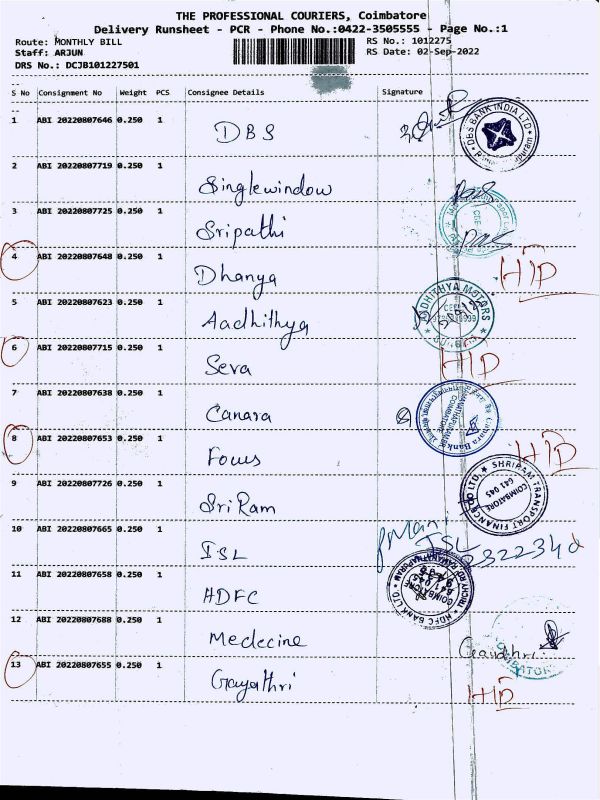 THE PROFESSIONAL COURIERS, Coimbatore
Delivery Runsheet - PCR - Phone No.:0422-3505555 - Page No.:1
Route: MONTHLY BILL RS No.: 1012275
Staff: ARJUN RS Date: 02-Sep-2022
DRS No.: DCJB101227501
S No Consignment No Weight PCS Consignee Details Signature
1 ABI 20220807646 0.250 1 DBS
DBS BANK INDIA LTD
2 ABI 20220807719 0.250 1 Singlewindow
3 ABI 20220807725 0.250 1 Sripathi
4 ABI 20220807648 0.250 1 Dhanya HIP
5 ABI 20220807623 0.250 1 Aadhithya
AADHITHYA MOTORS
6 ABI 20220807715 0.250 1 Seva HIP
7 ABI 20220807638 0.250 1 Canara
Canara Bank
COIMBATORE
8 ABI 20220807653 0.250 1 Focus HIP
9 ABI 20220807726 0.250 1 SriRam
SHRIRAM TRANSPORT FINANCE CO LTD.
COIMBATORE
641 045
10 ABI 20220807665 0.250 1 ISL
Mani
ISL
11 ABI 20220807658 0.250 1 HDFC
HDFC BANK LTD
TRICHY RD RAMANATHAPURAM
COIMBATORE
641 045
12 ABI 20220807688 0.250 1 Medecine Gayathri
13 ABI 20220807655 0.250 1 Gayathri HIP